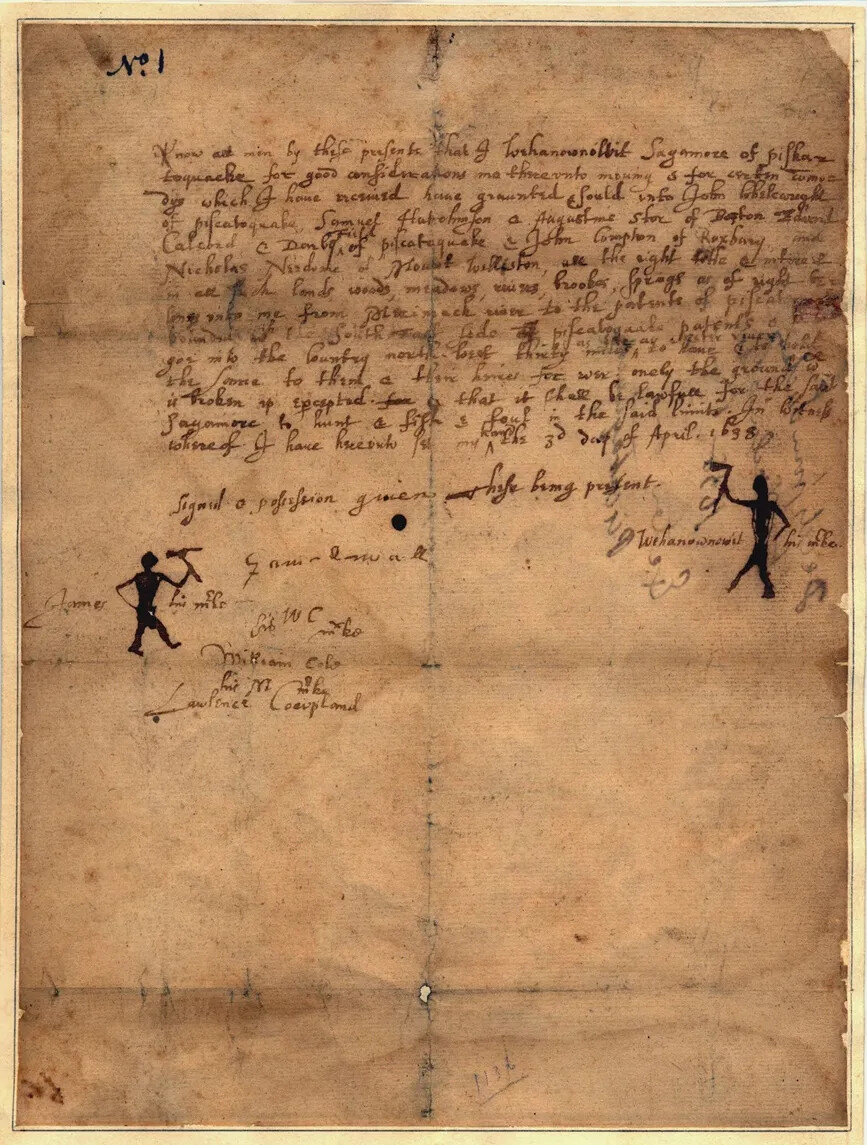 No. 1
Know all men by these presents that I Wehanownowit Sagamore of piskat
toquacke for good considerations me therevnto mouing & for certen como
dys which I have received have graunted & sould vnto John Whelewright
of piscatoquake Samuel Hutchinson & Augustine Stor of Boston Edward
Calcord & Darby Field of piscatoquake & John Compton of Roxbury and
Nicholas Needome of Mount Walliston, all the right title & interest
in all such lands woods, meadows, rivers, brookes, springs as of right be
longs vnto me from Merimack river to the patents of piscatoquake
bounded the South East side of piscatoquake patents &
goe into the Country north West thirty miles as far as oyster river to have & to hould
the same to them & their heires for ever, onely the ground wch
is broken up excepted & that it shall be lawfull for the said
Sagamore to hunt & fish & foul in the said limits. In Witnes
whereof I have herevnto set my hand the 3d day of April 1638
Signed & possession given these being present.
Wehanownowit his mrke
James his mrke
his W C mrke
William Cole
his M mrke
Lawlence Coevpland
1136